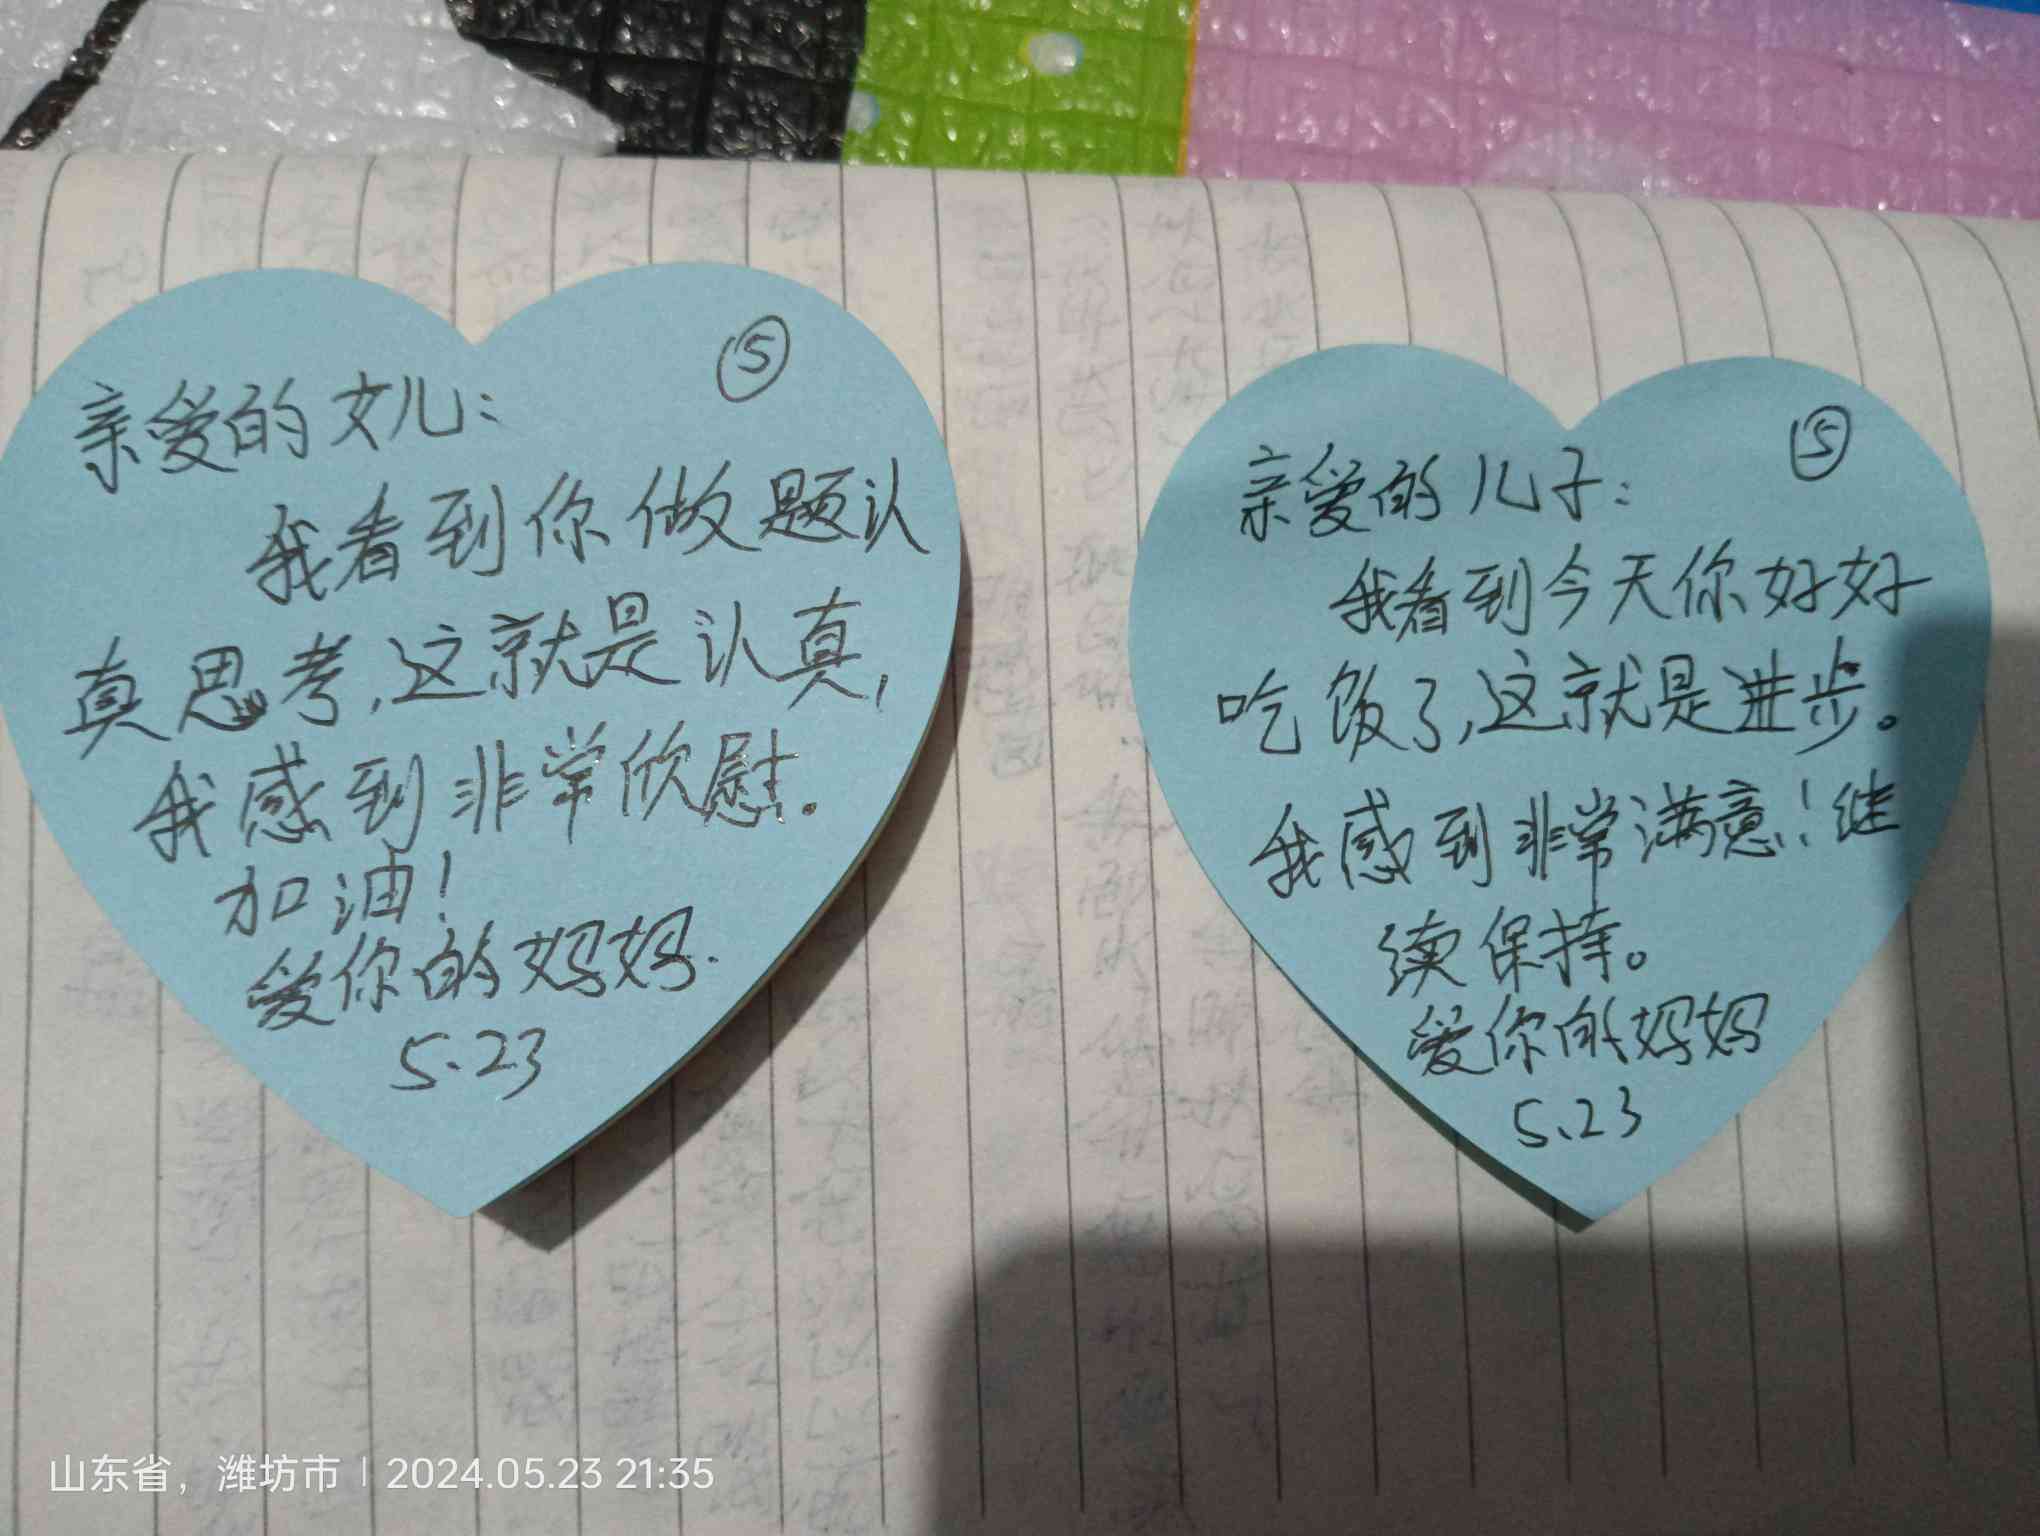 ⑤
亲爱的女儿：
我看到你做题认
真思考，这就是认真，
我感到非常欣慰．
加油！
爱你的妈妈．
5.23
⑤
亲爱的儿子：
我看到今天你好好
吃饭了，这就是进步。
我感到非常满意！继
续保持。
爱你的妈妈
5.23
山东省，潍坊市 | 2024.05.23 21:35